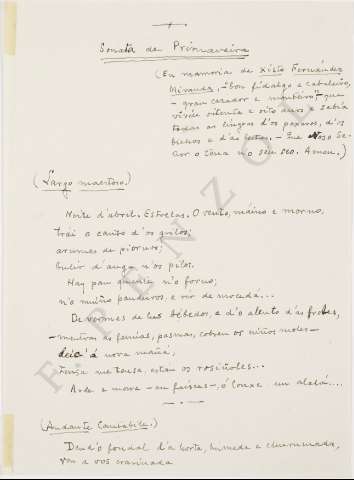 Sonata de Primaveira
(En memoria de Xisto Fernández
Miranda, —"bon fidalgo e cabaleiro,
— gran cazador e monteiro", — que
vivíu oitenta e oito anos e sabía
todas as linguas d'os paxaros, d'os
bichos e d'as festas. — Que Noso Se-
ñor o teña no seu seo. Amen.)
(Largo maestoso.)
Noite d'abril. Estrelas. O vento, maino e morno,
trai o canto d'os grilos;
arumes de piornos;
bulir d'auga n'os pilos.
Hay pan quente n'o forno;
n'o muiño pandeiros, e rir de mocedá...
De vermes de luz bébedos, e d'o alento d'as froles,
— mentras as femias, pasmas, cobren os niños moles —
deic'á nova mañá,
tensa que tensa, están os rosiñoles...
Arde e move — en faíscas —, ó lonxe un alalá...
(Andante Cantabile.)
Dend'o fondal d'a horta, humeda e
vou a vos
F. PENZOL